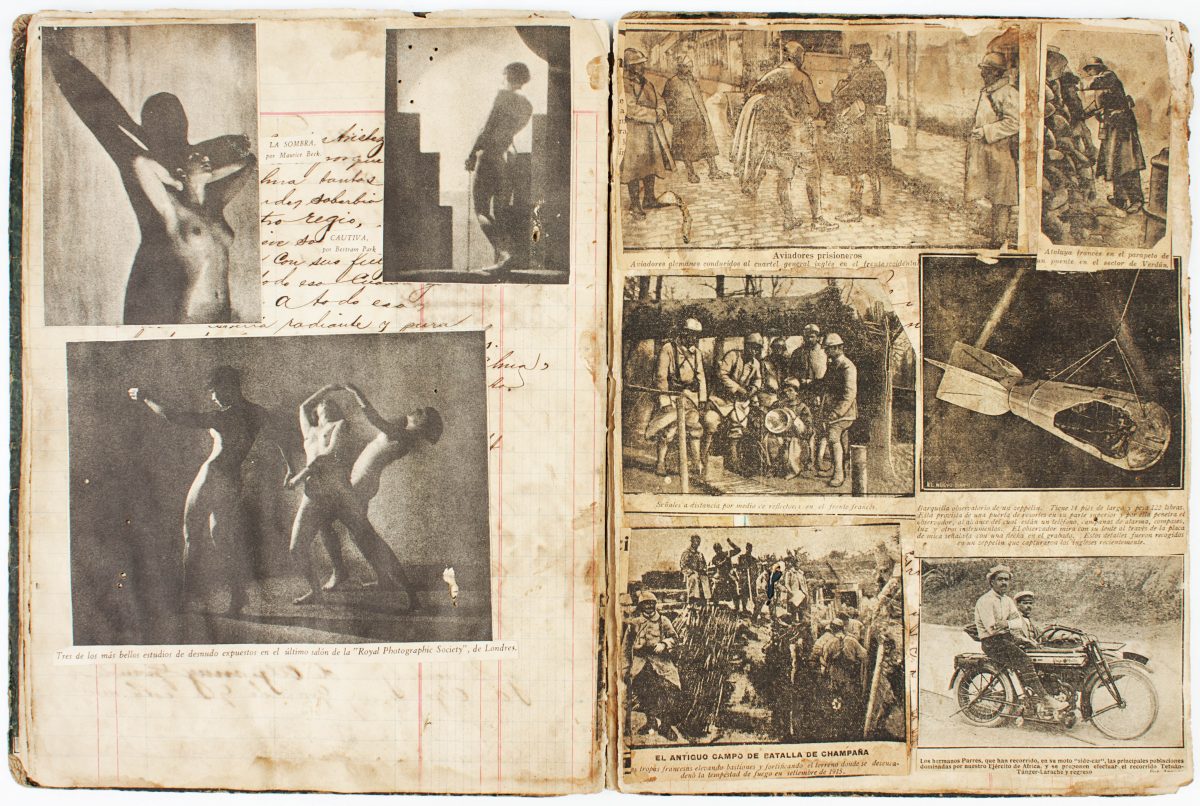 LA SOMBRA,
por Maurice Beck.
tantas
soberbio
regio,
CAUTIVA,
por Bertram Park
Con sus
todo eso
A todo eso
radiante y pura
Tres de los más bellos estudios de desnudo expuestos en el último salón de la "Royal Photographic Society", de Londres.
Aviadores prisioneros
Aviadores alemanes conducidos al cuartel general inglés en el frente occidental
Atalaya francés en el parapeto de
un puente en el sector de Verdún.
Señales a distancia por medio de reflectores en el frente francés.
EL NUEVO
Barquilla observatorio de un zeppelin. Tiene 14 pies de largo y pesa 122 libras.
Está provista de una puerta de escotilla en su parte superior y por ella penetra el
observador, al alcance del cual están un teléfono, campanas de alarma, compases,
luz y otros instrumentos. El observador mira con su lente al través de la placa
de mica señalada con una flecha en el grabado. Estos detalles fueron recogidos
en un zeppelin que capturaron los ingleses recientemente.
EL ANTIGUO CAMPO DE BATALLA DE CHAMPAÑA
tropas francesas elevando bastiones y fortificando el terreno donde se desenca-
denó la tempestad de fuego en setiembre de 1915.
Los hermanos Parres, que han recorrido, en su moto "side-car", las principales poblaciones
dominadas por nuestro Ejército de Africa, y se proponen efectuar el recorrido Tetuán-
Tánger-Larache y regreso